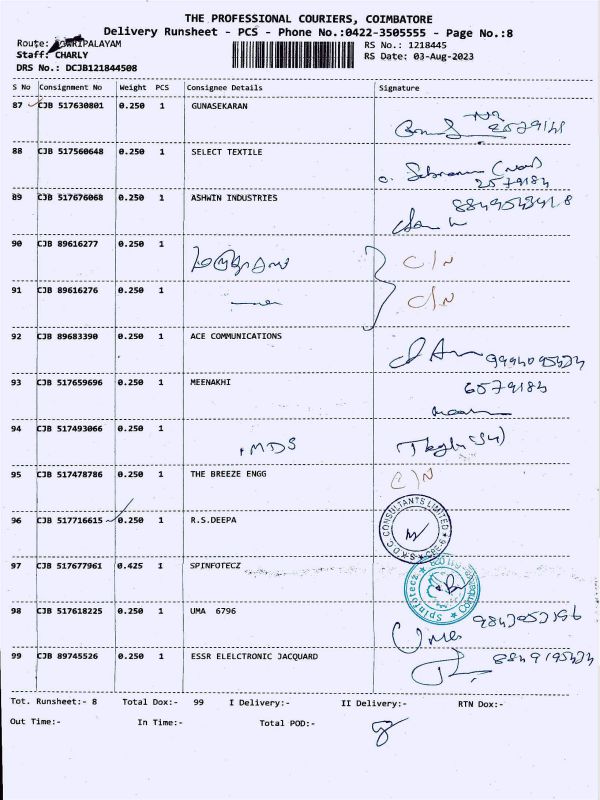 THE PROFESSIONAL COURIERS, COIMBATORE
Delivery Runsheet - PCS - Phone No.:0422-3505555 - Page No.:8
Route: RIPALAYAM RS No.: 1218445
Staff: CHARLY RS Date: 03-Aug-2023
DRS No.: DCJB121844508
S No Consignment No Weight PCS Consignee Details Signature
87 CJB 517630801 0.250 1 GUNASEKARAN
88 CJB 517560648 0.250 1 SELECT TEXTILE
2579184
89 CJB 517676068 0.250 1 ASHWIN INDUSTRIES
90 CJB 89616277 0.250 1 C/N
91 CJB 89616276 0.250 1 C/N
92 CJB 89683390 0.250 1 ACE COMMUNICATIONS
93 CJB 517659696 0.250 1 MEENAKHI 6579184
94 CJB 517493066 0.250 1 MDS
95 CJB 517478786 0.250 1 THE BREEZE ENGG C/N
96 CJB 517716615 0.250 1 R.S.DEEPA
S.K.D.C. CONSULTANTS LIMITED ★ CBE-6 ★
97 CJB 517677961 0.425 1 SPINFOTECZ
Spinfotecz ★ Coimbatore
98 CJB 517618225 0.250 1 UMA 6796
Uma
99 CJB 89745526 0.250 1 ESSR ELELCTRONIC JACQUARD
Tot. Runsheet:- 8 Total Dox:- 99 I Delivery:- II Delivery:- RTN Dox:-
Out Time:- In Time:- Total POD:-